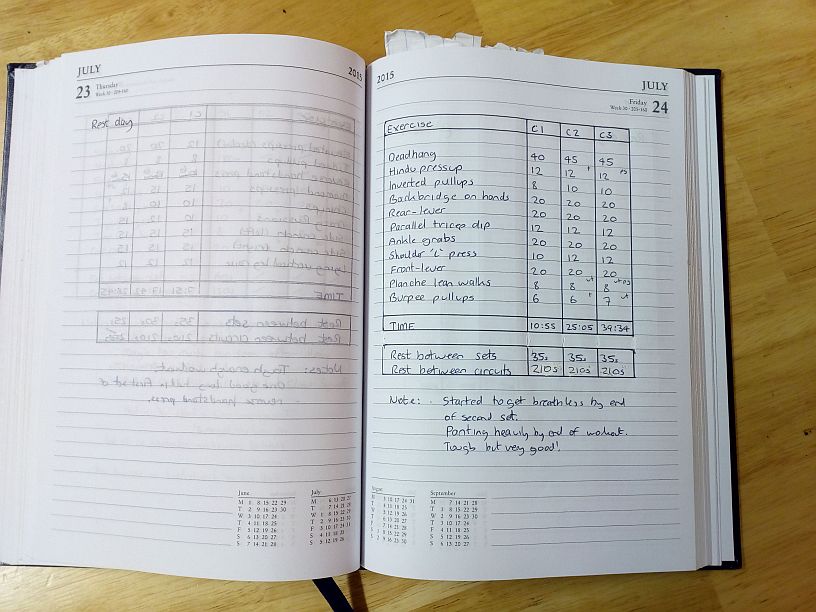 JULY
2015
23 Thursday
Week 30 · 205-160
Rest day
June
July
M 1 8 15 22 29
T 2 9 16 23 30
W 3 10 17 24
T 4 11 18 25
F 5 12 19 26
S 6 13 20 27
S 7 14 21 28
M 6 13 20 27
T 7 14 21
W 1 8 15 22
T 2 9 16 23
F 3 10 17 24
S 4 11 18 25
S 5 12 19 26
2015
JULY
Friday 24
Week 30 · 205-160
Exercise C1 C2 C3
Deadhang 40 45 45
Hindu pressup 12 12 12
Inverted pullups 8 10 10
Backbridge on hands 20 20 20
Rear-lever 20 20 20
Parallel tricep dip 12 12 12
Ankle grabs 20 20 20
Shoulder 'L' press 10 12 12
Front-lever 20 20 20
Planche lean walks 8 8 8
Burpee pullups 6 6 7
TIME 10:55 25:05 39:34
Rest between sets 35s 35s 35s
Rest between circuits 210s 210s 210s
Note: - Started to get breathless by end
of second set.
Panting heavily by end of workout.
Tough but very good!
August
September
M 3 10 17 24 31
T 4 11 18 25
W 5 12 19 26
T 6 13 20 27
F 7 14 21 28
S 1 8 15 22 29
S 2 9 16 23 30
M 7 14 21 28
T 1 8 15 22 29
W 2 9 16 23 30
T 3 10 17 24
F 4 11 18 25
S 5 12 19 26
S 6 13 20 27